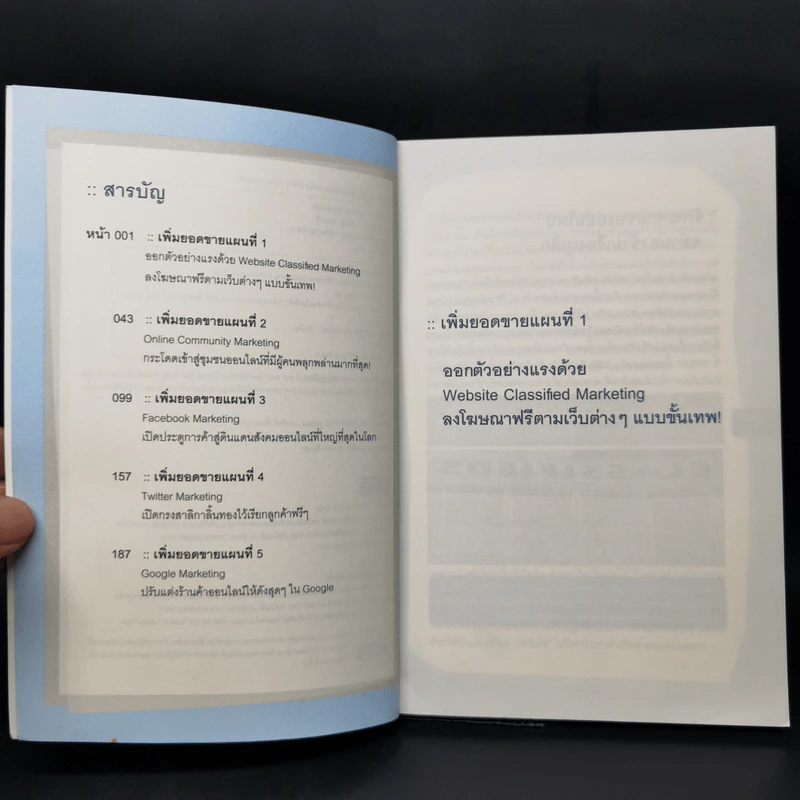 :: สารบัญ
หน้า 001 :: เพิ่มยอดขายแผนที่ 1
ออกตัวอย่างแรงด้วย Website Classified Marketing
ลงโฆษณาฟรีตามเว็บต่างๆ แบบขั้นเทพ!
043 :: เพิ่มยอดขายแผนที่ 2
Online Community Marketing
กระโดดเข้าสู่ชุมชนออนไลน์ที่มีผู้คนพลุกพล่านมากที่สุด!
099 :: เพิ่มยอดขายแผนที่ 3
Facebook Marketing
เปิดประตูการค้าสู่ดินแดนสังคมออนไลน์ที่ใหญ่ที่สุดในโลก
157 :: เพิ่มยอดขายแผนที่ 4
Twitter Marketing
เปิดกรงสาลิกาลิ้นทองไว้เรียกลูกค้าฟรีๆ
187 :: เพิ่มยอดขายแผนที่ 5
Google Marketing
ปรับแต่งร้านค้าออนไลน์ให้ดังสุดๆ ใน Google
:: เพิ่มยอดขายแผนที่ 1
ออกตัวอย่างแรงด้วย
Website Classified Marketing
ลงโฆษณาฟรีตามเว็บต่างๆ แบบขั้นเทพ!